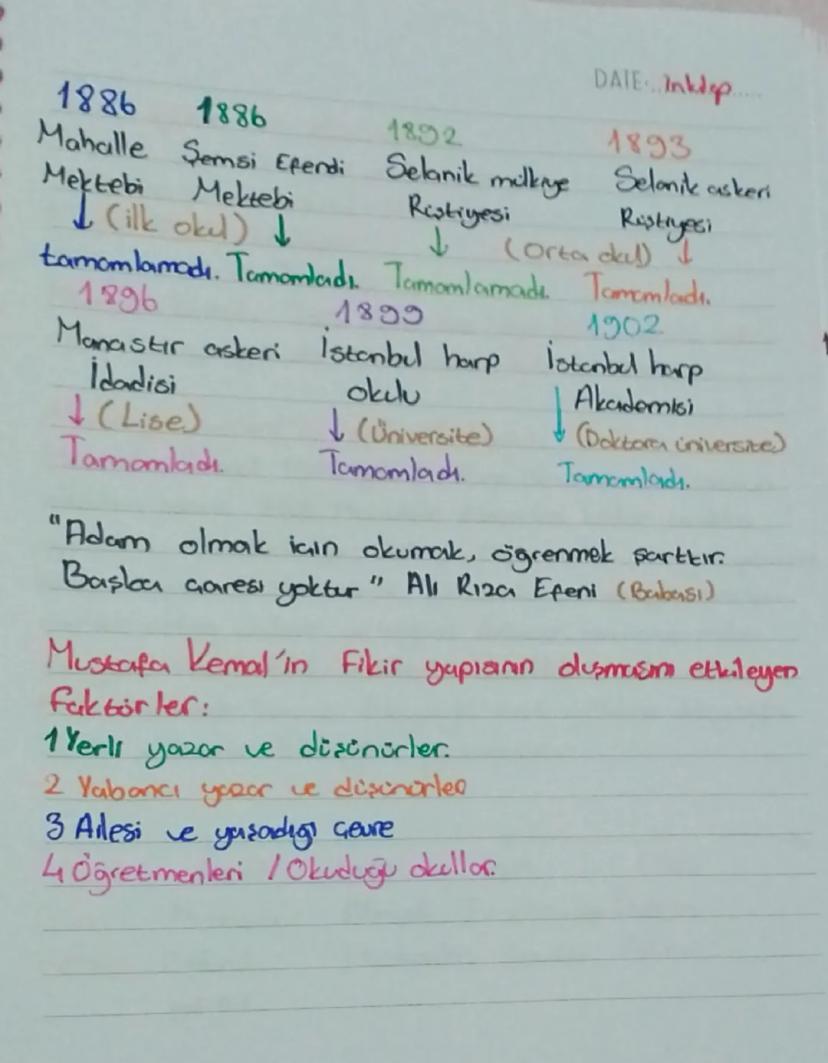 DATE: İnkılap
1886 1886 1892 1893
Mahalle Şemsi Efendi Selanik mülkiye Selanik askeri
Mektebi Mektebi Rüştiyesi Rüştiyesi
↓ (ilk okul) ↓ ↓ (Orta okul) ↓
tamamlamadı. Tamamladı. Tamamlamadı. Tamamladı.
1896 1899 1902
Manastır askeri İstanbul harp İstanbul harp
İdadisi okulu Akademisi
↓ (Lise) ↓ (Üniversite) ↓ (Doktora üniversite)
Tamamladı. Tamamladı. Tamamladı.
"Adam olmak için okumak, öğrenmek şarttır.
Başka çaresi yoktur" Ali Rıza Efeni (Babası)
Mustafa Kemal'in Fikir yapısının oluşmasını etkileyen
faktörler:
1 Yerli yazar ve düşünürler.
2 Yabancı yazar ve düşünürler
3 Ailesi ve yaşadığı çevre
4 Öğretmenleri / Okuduğu okullar.